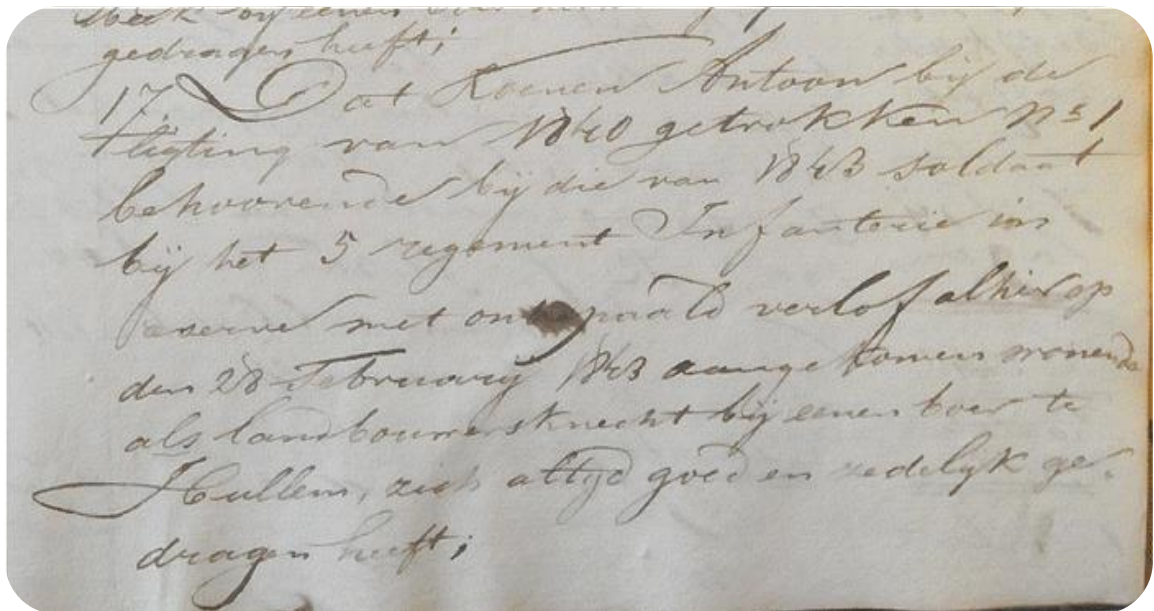 bij eenen boer
gedragen heeft;
17. Dat Koenen Antoon bij de
ligting van 1840 getrokken N° 1
behoorende bij die van 1843 soldaat
bij het 5 regement Infanterie in
reserve met onbepaald verlof alhier op
den 28 February 1843 aangekomen wonende
als landbouwersknecht bij eenen boer te
Hullem, zich altyd goed en zedelyk ge-
dragen heeft;